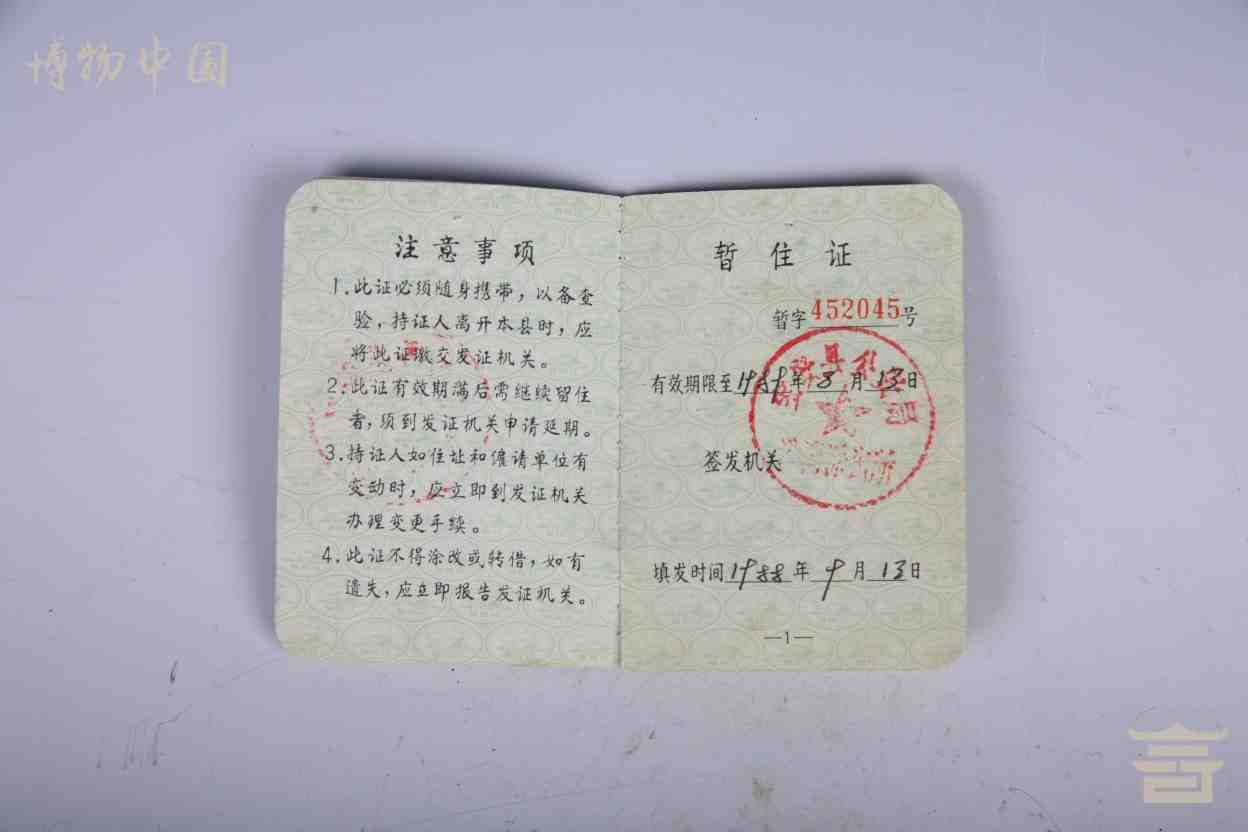 博物中国
注意事项
1.此证必须随身携带，以备查
验，持证人离开本县时，应
将此证缴交发证机关。
2.此证有效期满后需继续留住
者，须到发证机关申请延期。
3.持证人如住址和雇请单位有
变动时，应立即到发证机关
办理变更手续。
4.此证不得涂改或转借，如有
遗失，应立即报告发证机关。
暂住证
暂字452045号
有效期限至1989年8月13日
签发机关
填发时间1988年9月13日
—1—